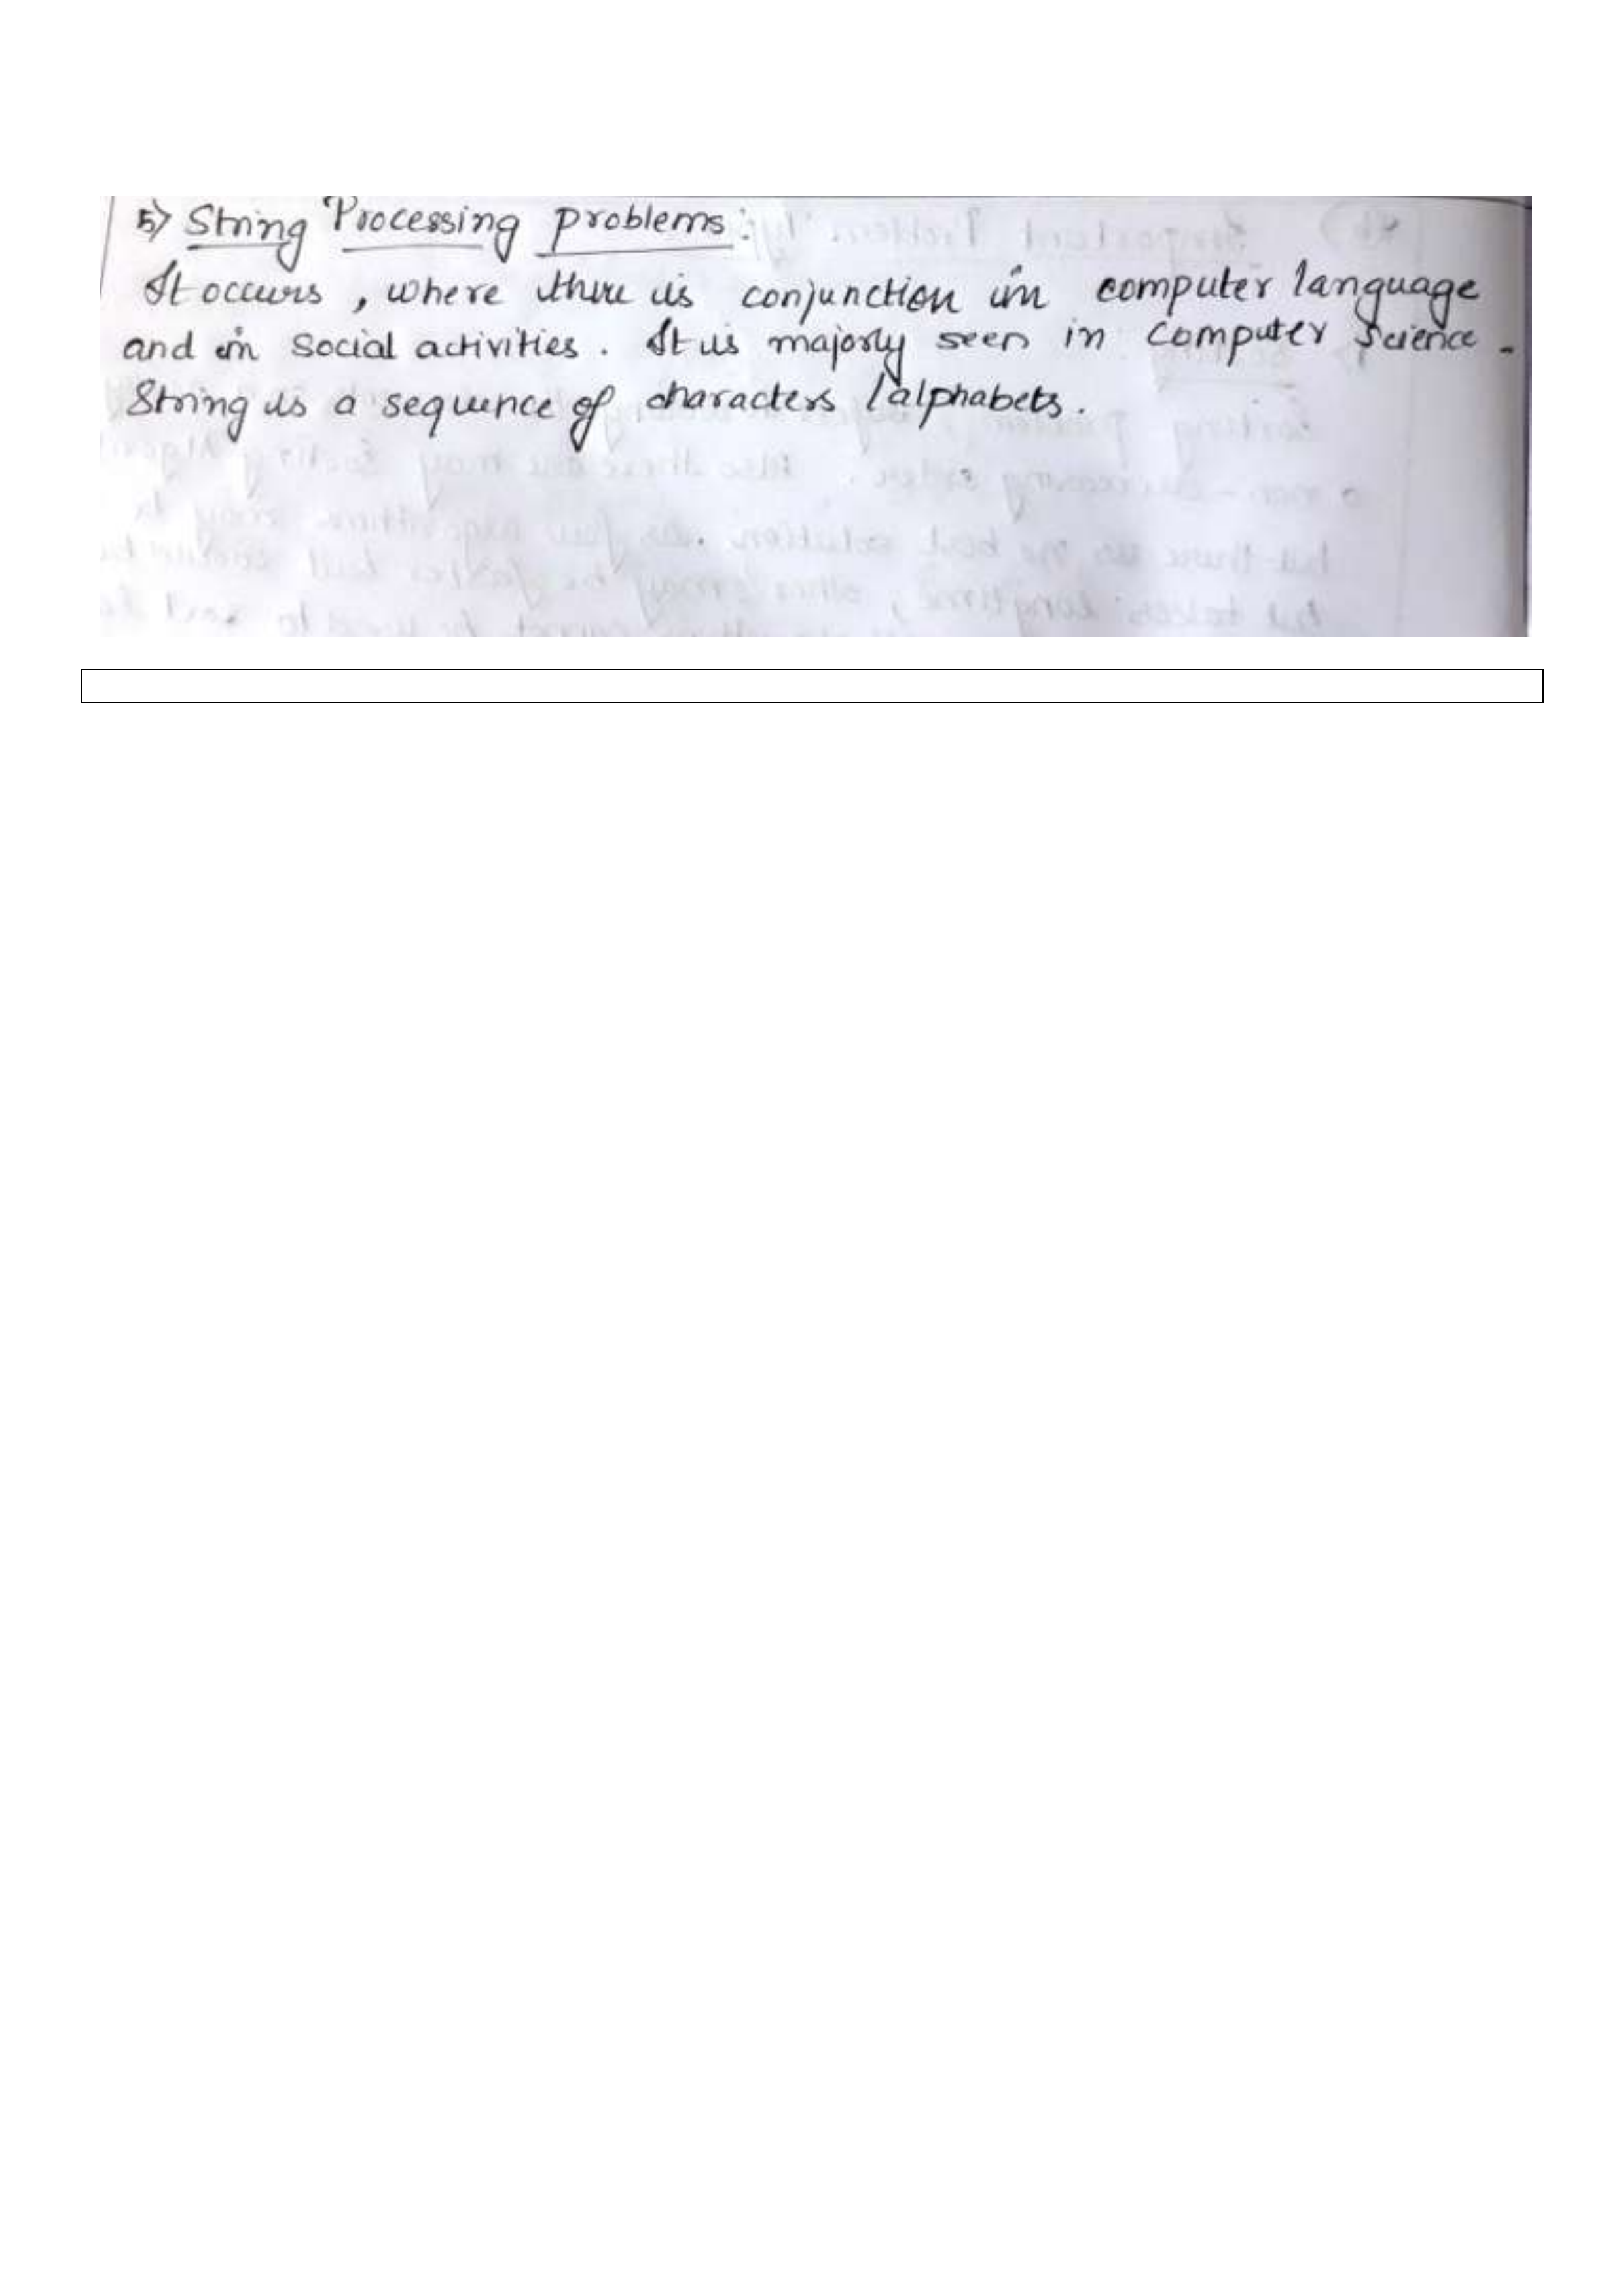 5) String Processing problems:
It occurs, where there is conjunction in computer language
and in social activities. It is majorly seen in Computer Science.
String is a sequence of characters /alphabets.